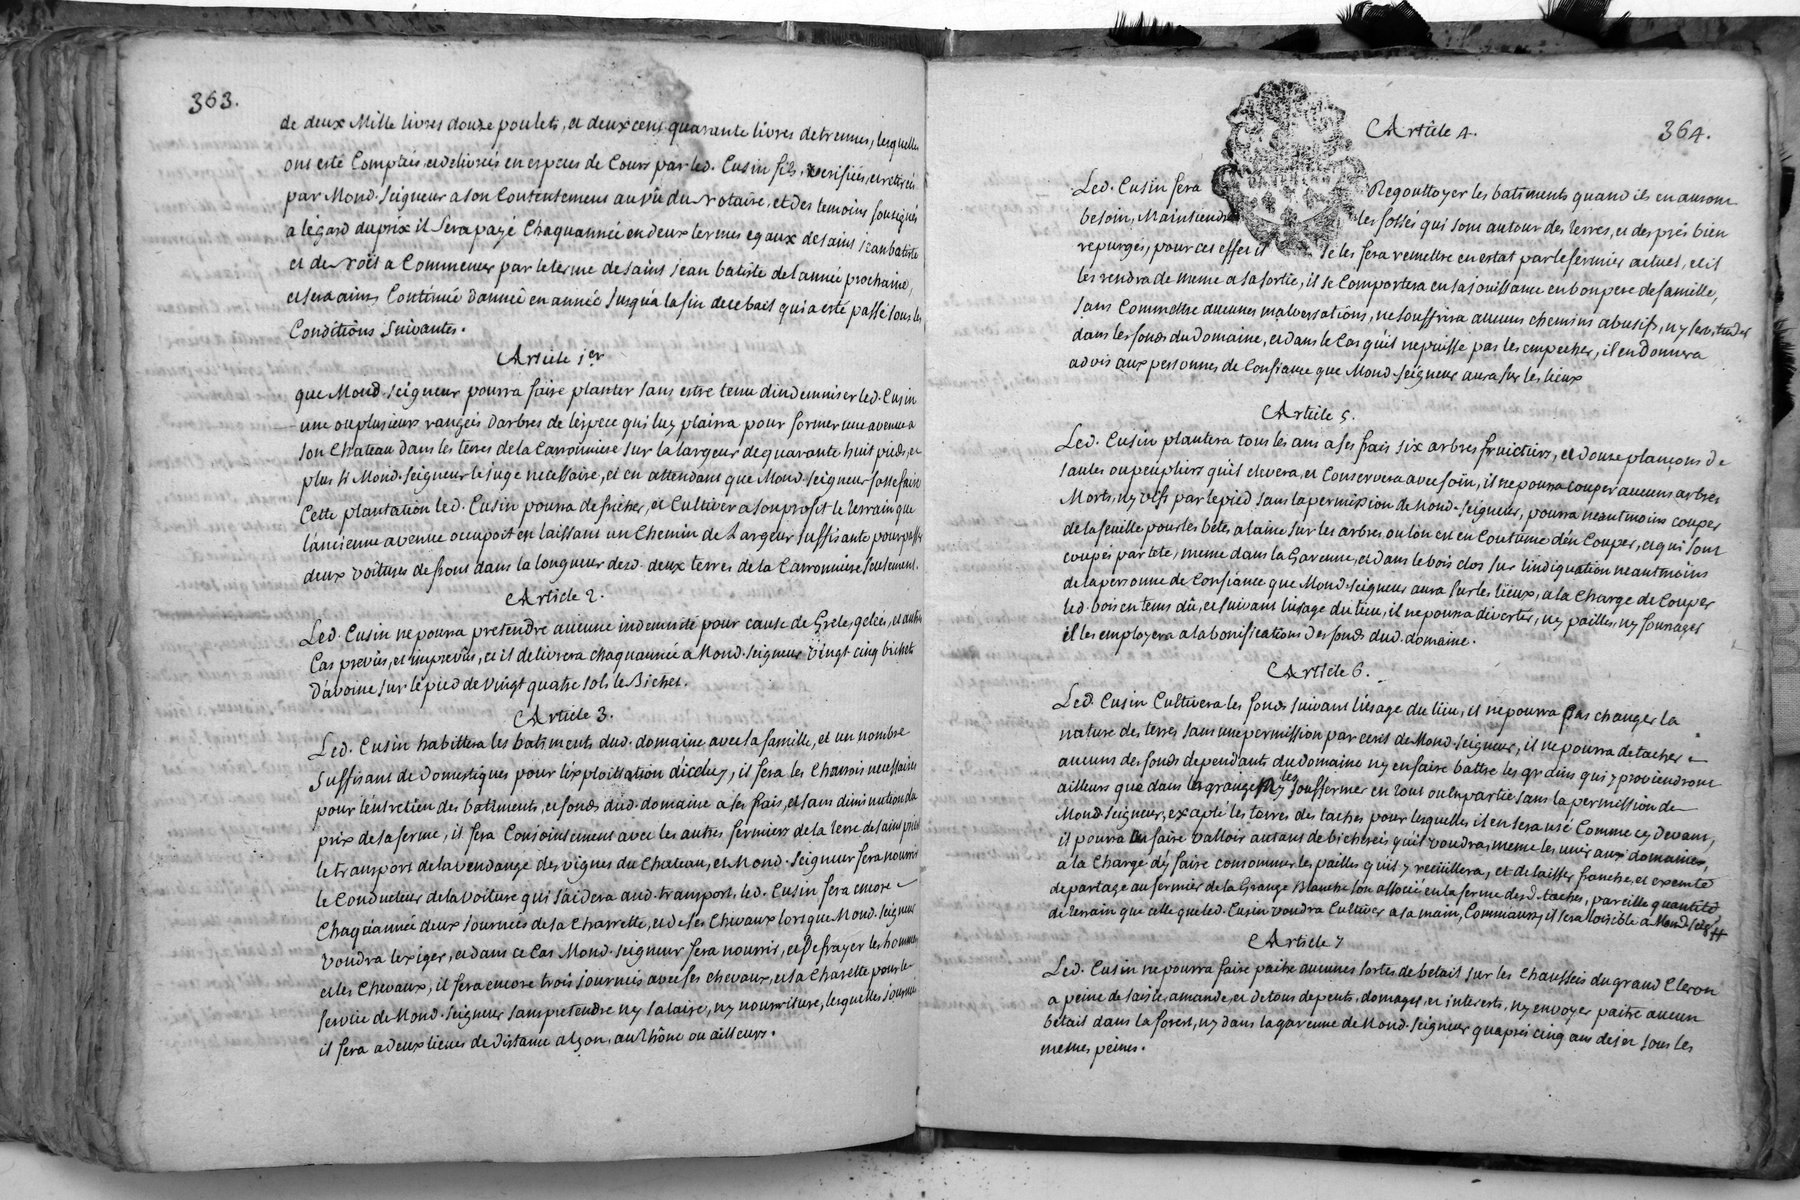 363.
de deux Mille livres douze poulets, et deux cens quarante livres detrennes, lesquelles
ont esté Comptées et delivrées en especes de Cours par led. Cusin fils, verifiées, et retirées
par Mond. seigneur a son Contentement au vû du Notaire, et des temoins sousignés
a légard du prix il sera payé Chaquannée en deux termes egaux de saint jean batiste
et de Noël a Commencer par le terme de saint jean batiste de lannée prochaine,
et sera ainsy Continüé dannée en année jusqu'a la fin de ce bail qui a esté passé sous les
Conditions suivantes.
Article 1er
que Mond. seigneur pourra faire planter sans estre tenu dindemniser led. Cusin
une ou plusieurs rangées darbres de lespece qui luy plaira pour former une avenue a
son Chateau dans les terres de la Carronniere sur la largeur de quarante huit pieds, et
plus si Mond. seigneur le juge necessaire, et en attendant que Mond. seigneur fasse faire
Cette plantation led. Cusin pourra defricher, et Cultiver a son profit le terrain que
lancienne avenue ocupoit en laissant un Chemin de Largeur suffisante pour passer
deux voitures de front dans la longueur desd. deux terres de la Carronniere seulement.
Article 2.
Led. Cusin ne pourra pretendre aucune indemnité pour cause de Grele, gelées, et autres
Cas prevûs, et imprevûs, et il delivrera chaquannée a Mond. seigneur vingt cinq bichets
D'avoine sur le pied de vingt quatre sols le Bichet.
Article 3.
Led. Cusin habittera les batiments dud. domaine avec sa famille, et un nombre
suffisant de domestiques pour l'exploittation d'iceluy, il fera les Charrois necessaires
pour l'entretien des batiments, et fonds dud. domaine a ses frais, et sans diminution du
prix de sa ferme, il fera Conjointement avec les autres fermiers de la Terre de saint
le transport de la vendange des vignes du Chateau, et Mond. seigneur fera nourrir
le Conducteur de la voiture qui s'aidera aud. transport. led. Cusin fera encore
Chaquannée deux journées de sa Charrette, et de ses Chevaux lorsque Mond. seigneur
voudra lexiger, et dans ce Cas Mond. seigneur fera nourrir, et Defrayer les hommes
et les Chevaux, il fera encore trois journées avec ses chevaux, et sa Charette pour le
service de Mond. seigneur sans pretendre ny salaire, ny nourriture, lesquelles journées
il fera a deux lieues de distance a Lyon, au Rhône ou ailleurs.
Article 4.
364.
Led. Cusin fera Regouttoyer les batiments quand ils en auront
besoin, Maintiendra les fossés qui sont autour des terres, et des prés bien
repurgés, pour cet effet il se les fera remettre en estat par le fermier actuel, et il
les rendra de meme a sa sortie, il se Comportera en sa jouissance en bon pere de famille,
sans Commettre aucunes malversations, ne souffrira aucuns chemins abusifs, ny servitudes
dans les fonds du domaine, et dans le Cas qu'il ne puisse pas les empecher, il en Donnera
advis aux personnes de Confiance que Mond. seigneur aura sur les lieux
Article 5.
Led. Cusin plantera tous les ans a ses frais six arbres fruictiers, et douze plançons de
saules ou peupliers qu'il elevera, et Conservera avec soin, il ne pourra couper aucuns arbres
Morts, ny vifs par le pied sans la permission de Mond. seigneur, pourra neantmoins couper
de la feuille pour les betes a laine sur les arbres ou lon est en Coutume d'en Couper, et qui sont
coupés par tete, meme dans la Garenne, et dans le bois clos sur lindiquation neantmoins
de la personne de Confiance que Mond. seigneur aura sur les lieux, a la Charge de Couper
led. bois en tems dû, et suivant l'usage du lieu, il ne pourra divertir, ny pailles, ny fourages
il les employera a la bonifications des fonds dud. domaine.
Article 6.
Led. Cusin Cultivera les fonds suivant l'usage du lieu, il ne pourra pas changer la
nature des terres sans une permission par ecrit de Mond. seigneur, il ne pourra detacher
aucuns des fonds dependants du domaine ny en faire battre les grains qui y proviendront
ailleurs que dans la grange ny les sousfermer en tout ou en partie sans la permission de
Mond. seigneur, excepté les terres des taches pour lesquelles il en sera usé Comme cy devant,
il pourra en faire valloir autant de bicherées qu'il voudra, meme les unir aux domaines,
a la Charge d'y faire consommer les pailles qu'il y recuillera, et de laisser franche, et exempte
de partage au fermier de la Grange Blanche son associé en la ferme desd. taches, pareille quantité
de terrain que celle que led. Cusin voudra Cultiver a sa main, Commancy, il sera loisible a Mond. seigr
Article 7
Led. Cusin ne pourra faire paitre aucunes sortes de betail sur les chaussées du grand Cleron
a peine de saisie, amande, et de tous depents, domages, et interests, ny envoyer paitre aucun
betail dans la forest, ny dans la garenne de Mond. seigneur quapres cinq ans de jet sous les
memes peines.